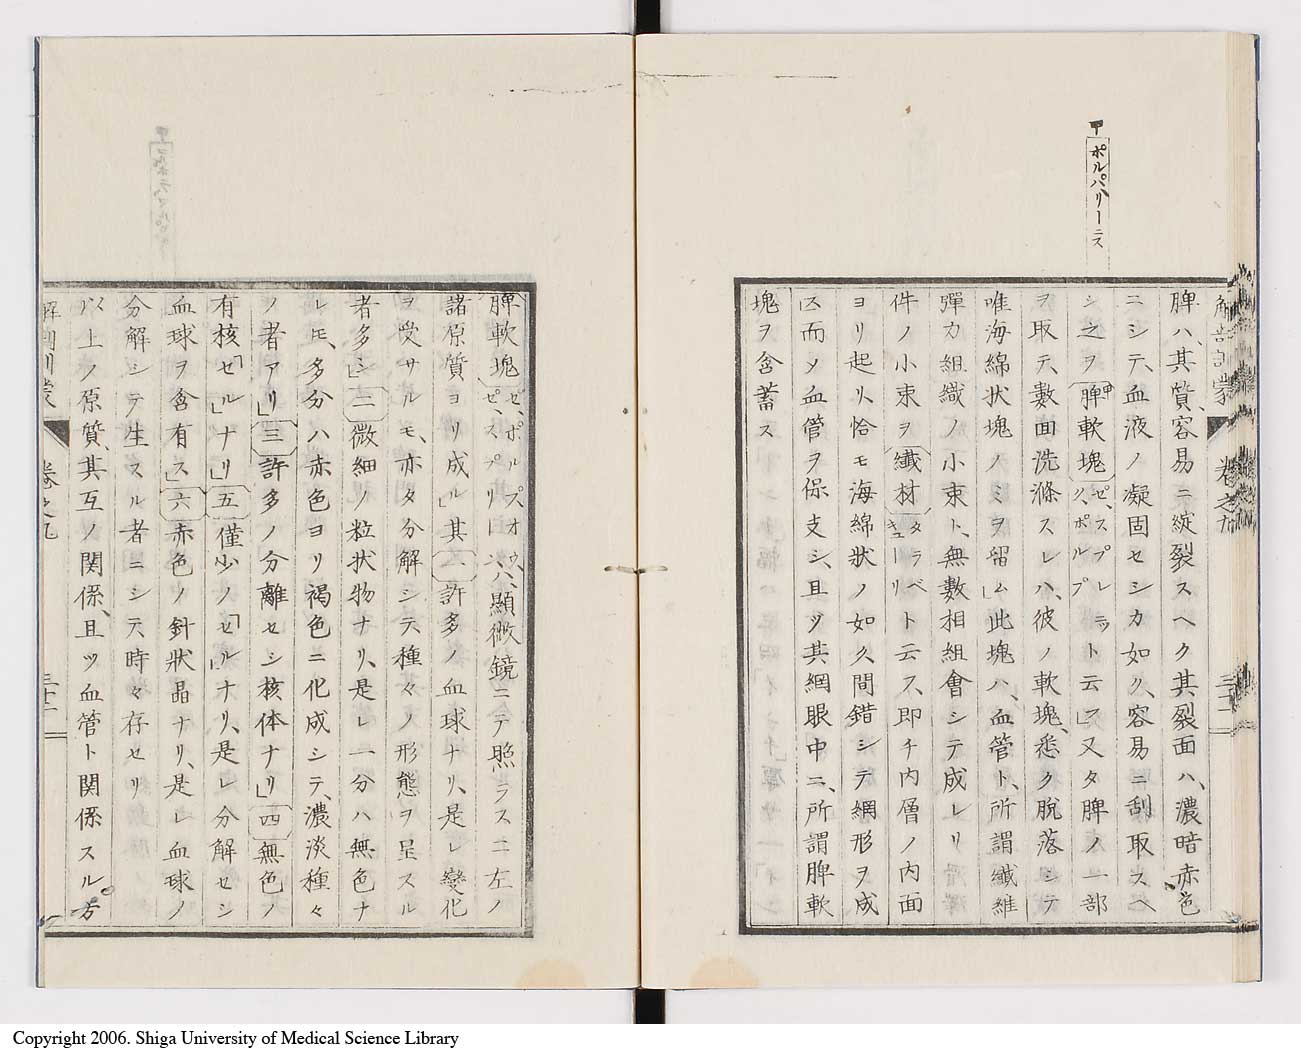 甲
ポルパリーニス
解剖訓蒙
卷之九
脾ハ、其質、容易ニ綻裂スヘク其裂面ハ、濃暗赤色
ニシテ、血液ノ凝固セシカ如ク、容易ニ刮取スヘ
シ之ヲ脾軟塊ゼ、スプレニックポルプト云フ」又タ脾ノ一部
ヲ取テ、數面洗滌スレハ、彼ノ軟塊、悉ク脱落シテ
唯海綿狀塊ノミヲ留ム」此塊ハ、血管ト、所謂纖維
彈力組織ノ小束ト、無數相組會シテ成レリ
件ノ小束ヲ纖材タラベキューリト云ス、即チ内層ノ内面
ヨリ起リ、恰モ海綿狀ノ如ク、間錯シテ網形ヲ成
ス而メ血管ヲ保支シ、且ツ其網眼中ニ、所謂脾軟
塊ヲ含蓄ス
脾軟塊ゼ、ポルプ、オウ、ゼ、スプリーンハ、顯微鏡ニテ照ラスニ左ノ
諸原質ヨリ成ル」其一許多ノ血球ナリ、是レ變化
ヲ受サルモ、亦タ分解シテ、種々ノ形態ヲ呈スル
者多シ」二微細ノ粒狀物ナリ、是レ一分ハ無色ナ
レ𪜈、多分ハ赤色ヨリ褐色ニ化成シテ、濃淡種々
ノ者アリ」三許多ノ分離セシ核体ナリ」四無色ノ
有核「セル」ナリ」五僅少ノ「セル」ナリ、是レ分解セシ
血球ヲ含有ス」六赤色ノ針狀晶ナリ、是レ血球ノ
分解シテ生スル者ニシテ、時々存セリ
以上ノ原質、其互ノ関係、且ツ血管ト関係スル方
解剖訓蒙
卷之九
Copyright 2006. Shiga University of Medical Science Library